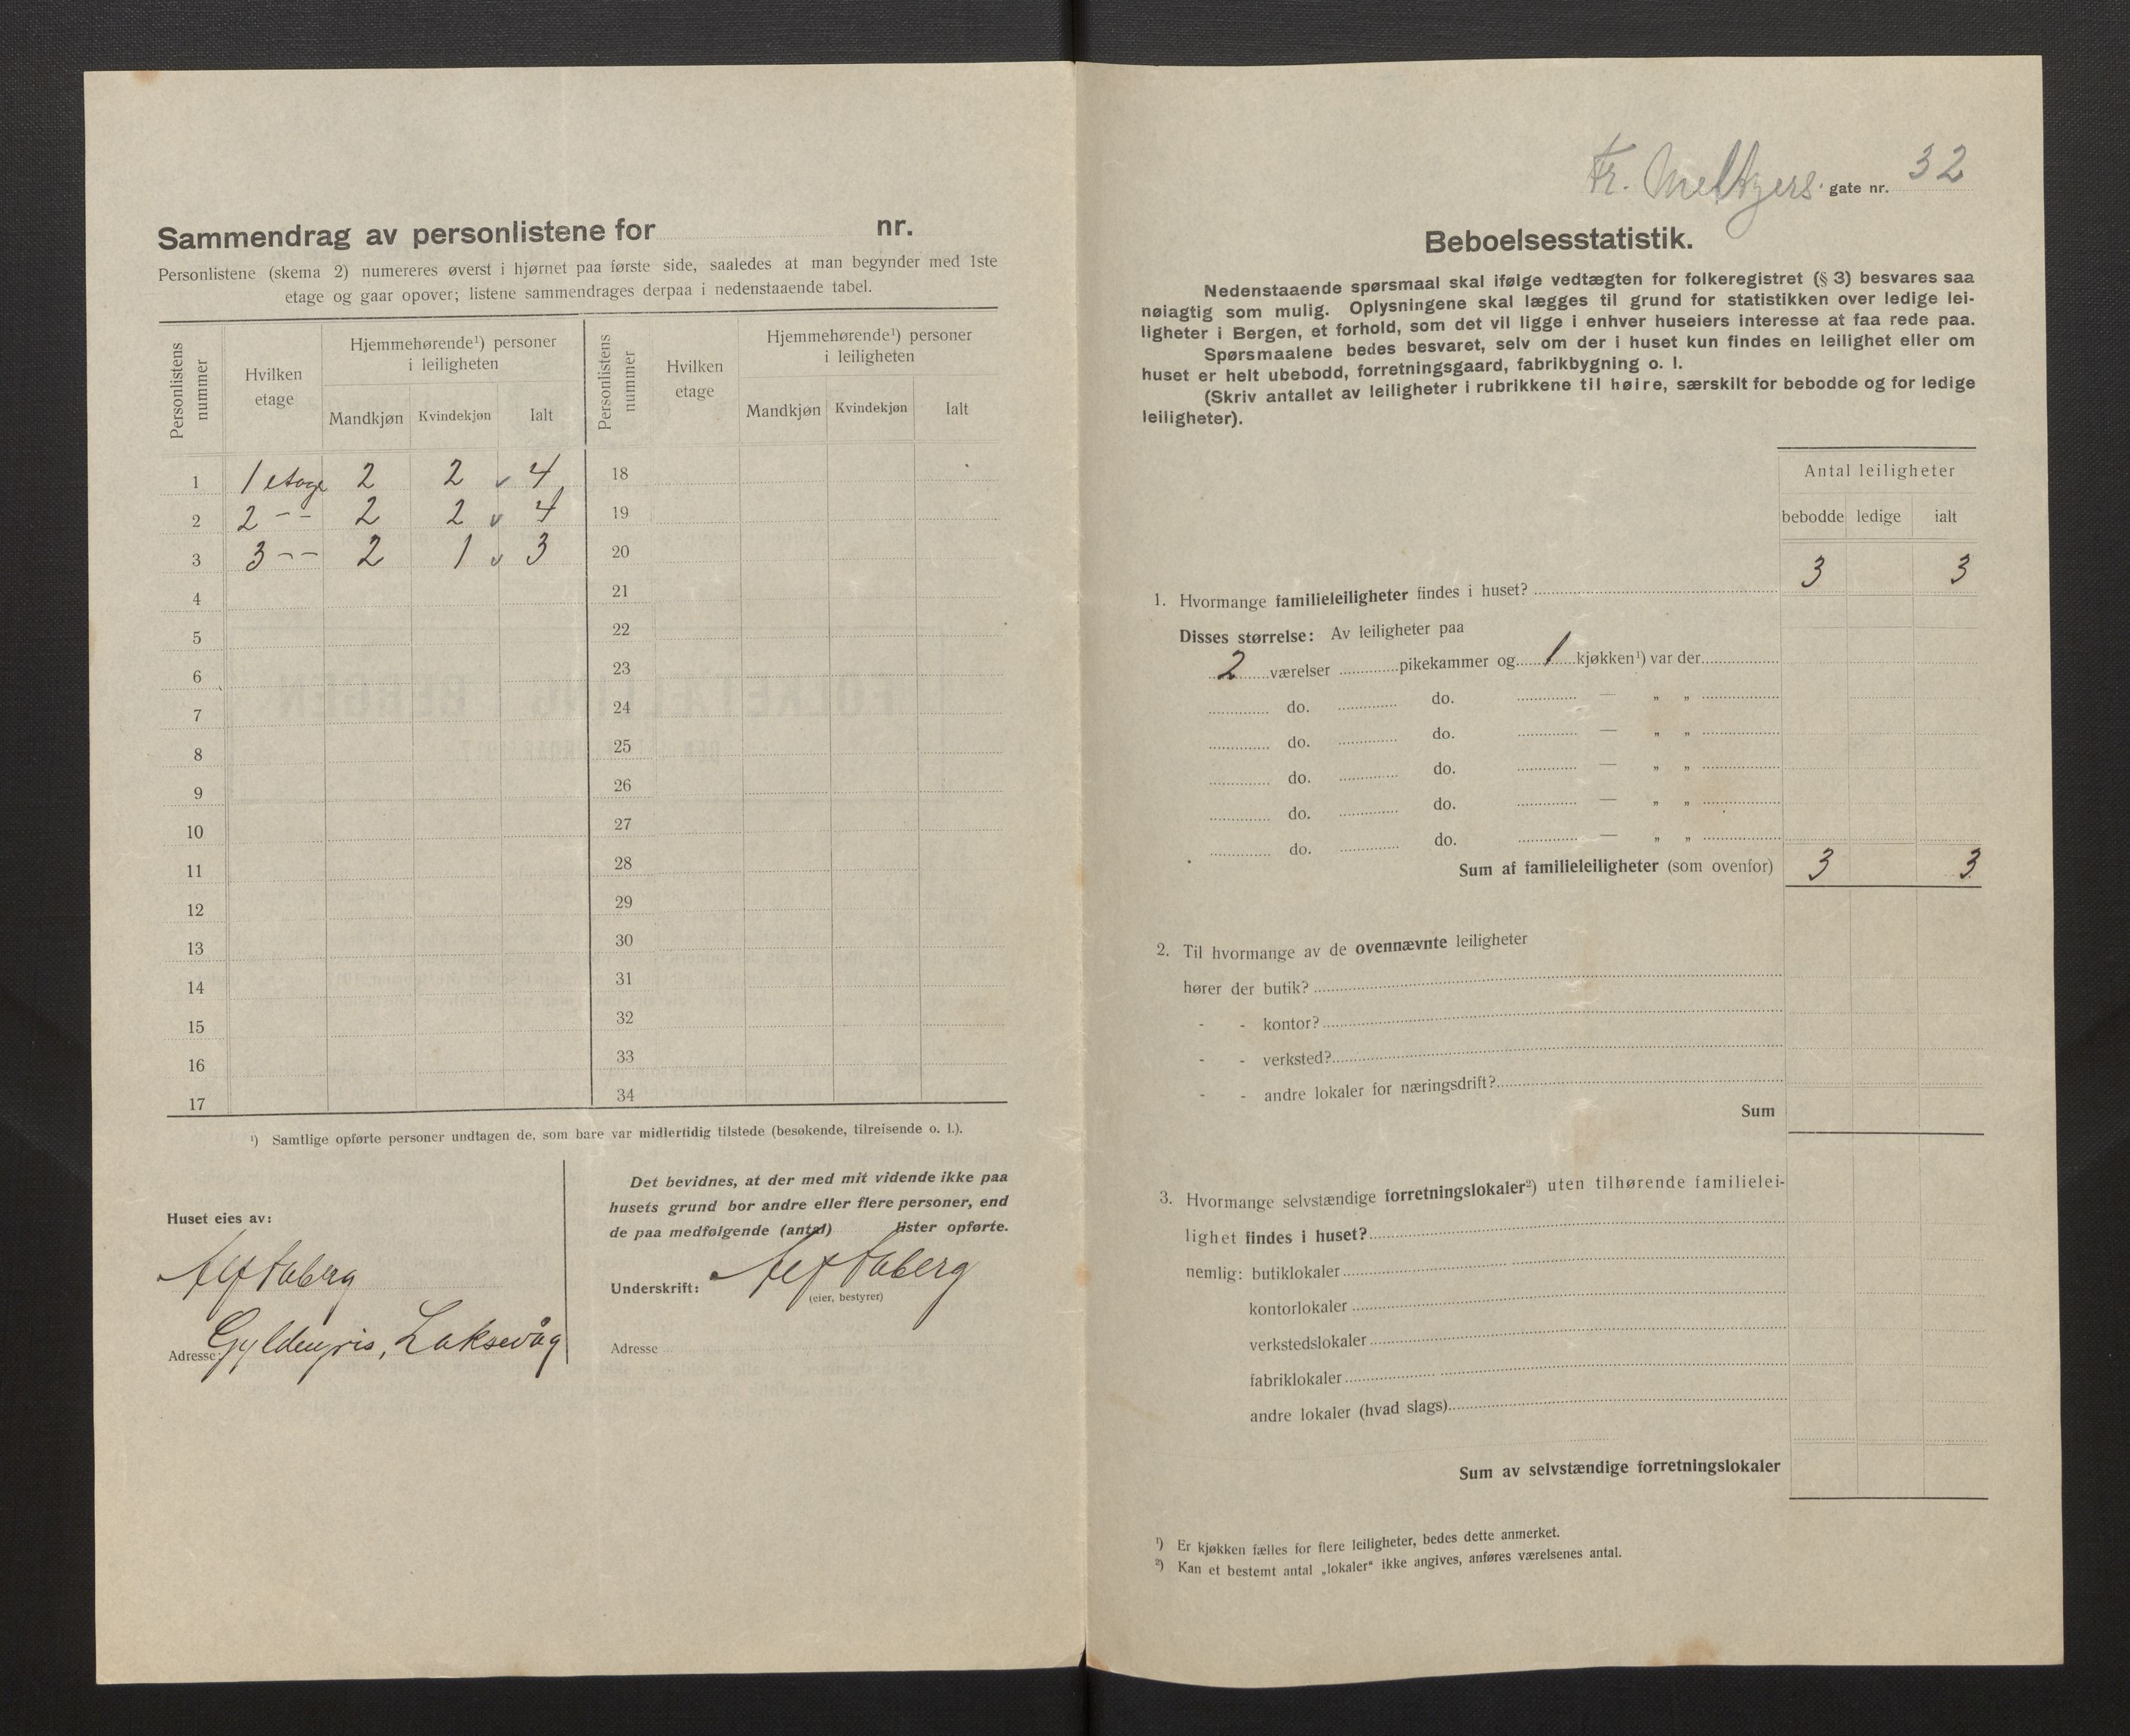 Sammendrag av personlistene for nr.
Personlistene (skema 2) numereres øverst i hjørnet paa første side, saaledes at man begynder med 1ste
etage og gaar opover; listene sammendrages derpaa i nedenstaaende tabel.
Personlistens nummer
Hvilken etage
Hjemmehørende¹) personer i leiligheten
Mandkjøn Kvindekjøn Ialt
Personlistens nummer
Hvilken etage
Hjemmehørende¹) personer i leiligheten
Mandkjøn Kvindekjøn Ialt
1 1 etage 2 2 v 4 18
2 2 -- 2 2 v 4 19
3 3 -- 2 1 v 3 20
4 21
5 22
6 23
7 24
8 25
9 26
10 27
11 28
12 29
13 30
14 31
15 32
16 33
17 34
¹) Samtlige opførte personer undtagen de, som bare var midlertidig tilstede (besøkende, tilreisende o. l.).
Huset eies av:
Adresse: Laksevåg
Det bevidnes, at der med mit vidende ikke paa
husets grund bor andre eller flere personer, end
de paa medfølgende (antal) lister opførte.
Underskrift:
(eier, bestyrer)
Adresse
Fr. Meltzers gate nr. 32
Beboelsesstatistik.
Nedenstaaende spørsmaal skal ifølge vedtægten for folkeregistret (§ 3) besvares saa
nøiagtig som mulig. Oplysningene skal lægges til grund for statistikken over ledige lei-
ligheter i Bergen, et forhold, som det vil ligge i enhver huseiers interesse at faa rede paa.
Spørsmaalene bedes besvaret, selv om der i huset kun findes en leilighet eller om
huset er helt ubebodd, forretningsgaard, fabrikbygning o. l.
(Skriv antallet av leiligheter i rubrikkene til høire, særskilt for bebodde og for ledige
leiligheter).
Antal leiligheter
bebodde ledige ialt
1. Hvormange familieleiligheter findes i huset? 3 3
Disses størrelse: Av leiligheter paa
2 værelser pikekammer og 1 kjøkken¹) var der
do. do. — „ „
do. do. — „ „
do. do. — „ „
do. do. — „ „
do. do. — „ „
Sum af familieleiligheter (som ovenfor) 3 3
2. Til hvormange av de ovennævnte leiligheter
hører der butik?
- - kontor?
- - verksted?
- - andre lokaler for næringsdrift?
Sum
3. Hvormange selvstændige forretningslokaler²) uten tilhørende familielei-
lighet findes i huset?
nemlig: butiklokaler
kontorlokaler
verkstedslokaler
fabriklokaler
andre lokaler (hvad slags)
Sum av selvstændige forretningslokaler
¹) Er kjøkken fælles for flere leiligheter, bedes dette anmerket.
²) Kan et bestemt antal „lokaler“ ikke angives, anføres værelsenes antal.